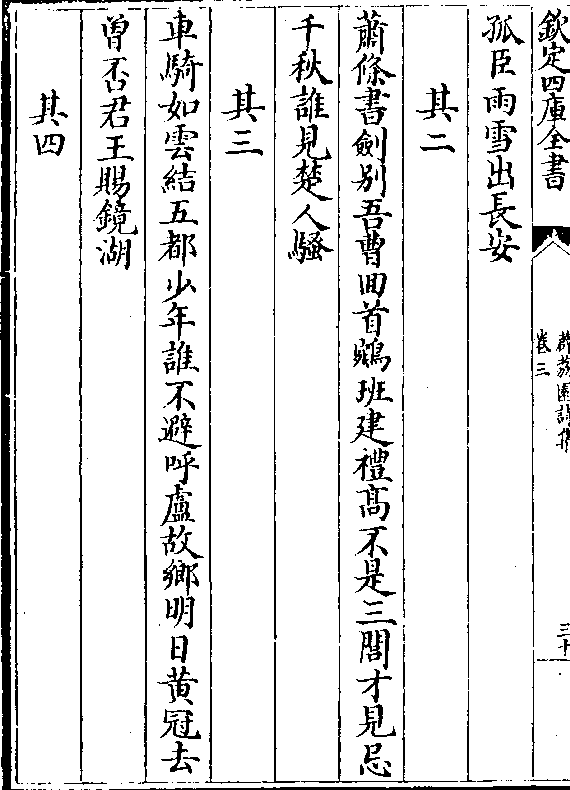 欽定四庫全書
薜荔園詩集
卷三
三十
孤臣雨雪出長安
其二
蕭條書劍别吾曹回首鵷班建禮髙不是三閭才見忌
千秋誰見楚人騷
其三
車騎如雲結五都少年誰不避呼盧故鄉明日黄冠去
曽否君王賜鏡湖
其四